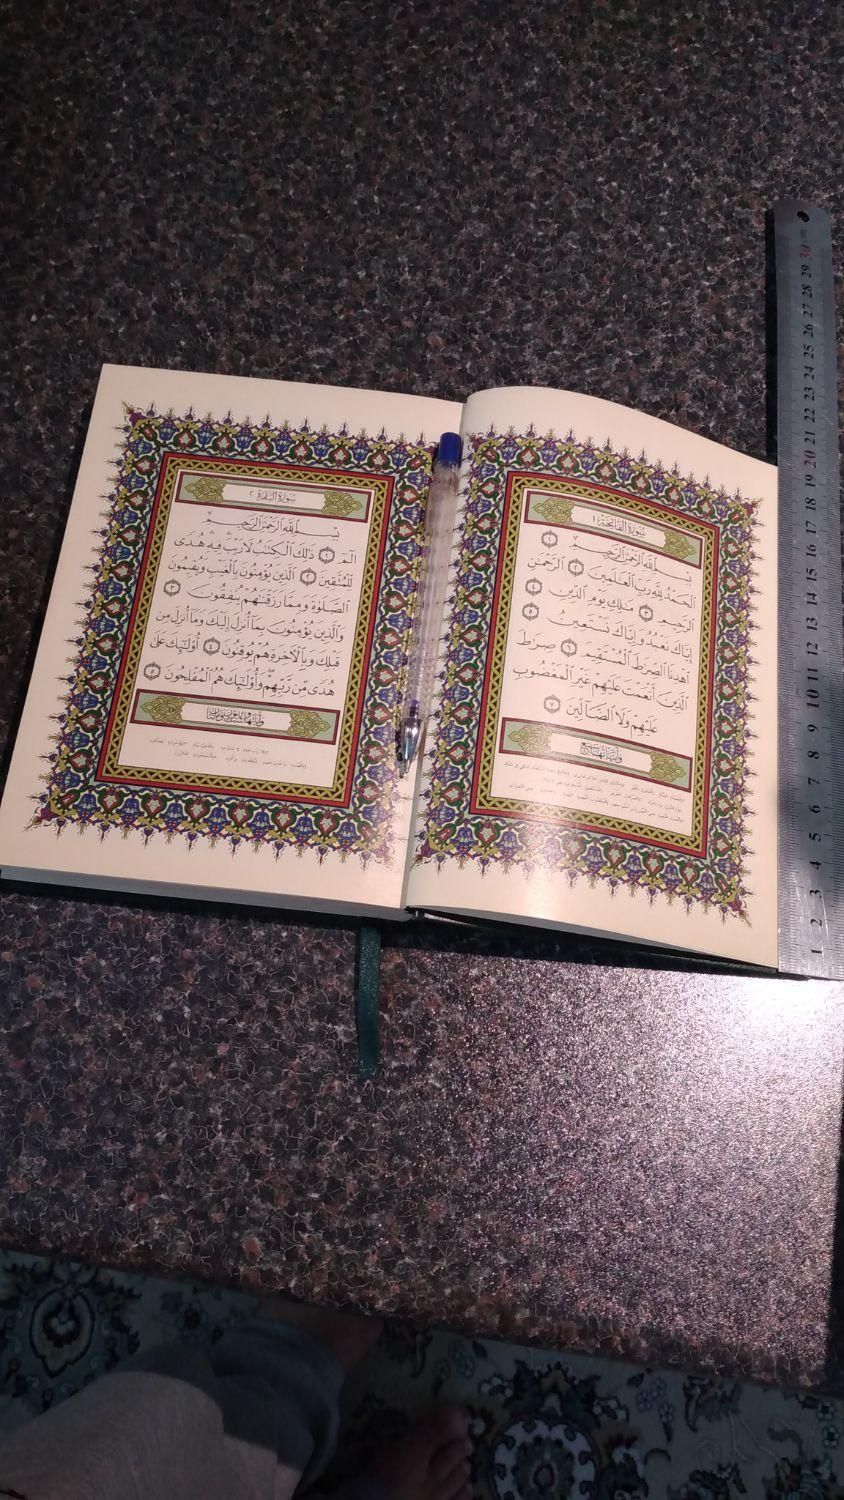 سُورَةُ الفَاتِحَةِ ١
بِسْمِ ٱللَّهِ ٱلرَّحْمَٰنِ ٱلرَّحِيمِ ١
ٱلْحَمْدُ لِلَّهِ رَبِّ ٱلْعَٰلَمِينَ ٢ ٱلرَّحْمَٰنِ
ٱلرَّحِيمِ ٣ مَٰلِكِ يَوْمِ ٱلدِّينِ ٤
إِيَّاكَ نَعْبُدُ وَإِيَّاكَ نَسْتَعِينُ ٥
ٱهْدِنَا ٱلصِّرَٰطَ ٱلْمُسْتَقِيمَ ٦ صِرَٰطَ
ٱلَّذِينَ أَنْعَمْتَ عَلَيْهِمْ غَيْرِ ٱلْمَغْضُوبِ
عَلَيْهِمْ وَلَا ٱلضَّآلِّينَ ٧
سُورَةُ البَقَرَةِ ٢
بِسْمِ ٱللَّهِ ٱلرَّحْمَٰنِ ٱلرَّحِيمِ
الٓمٓ ١ ذَٰلِكَ ٱلْكِتَٰبُ لَا رَيْبَ فِيهِ هُدًى
لِّلْمُتَّقِينَ ٢ ٱلَّذِينَ يُؤْمِنُونَ بِٱلْغَيْبِ وَيُقِيمُونَ
ٱلصَّلَوٰةَ وَمِمَّا رَزَقْنَٰهُمْ يُنفِقُونَ ٣
وَٱلَّذِينَ يُؤْمِنُونَ بِمَآ أُنزِلَ إِلَيْكَ وَمَآ أُنزِلَ مِن
قَبْلِكَ وَبِٱلْءَاخِرَةِ هُمْ يُوقِنُونَ ٤ أُو۟لَٰٓئِكَ عَلَىٰ
هُدًى مِّن رَّبِّهِمْ وَأُو۟لَٰٓئِكَ هُمُ ٱلْمُفْلِحُونَ ٥
1 2 3 4 5 6 7 8 9 10 11 12 13 14 15 16 17 18 19 20 21 22 23 24 25 26 27 28 29 30